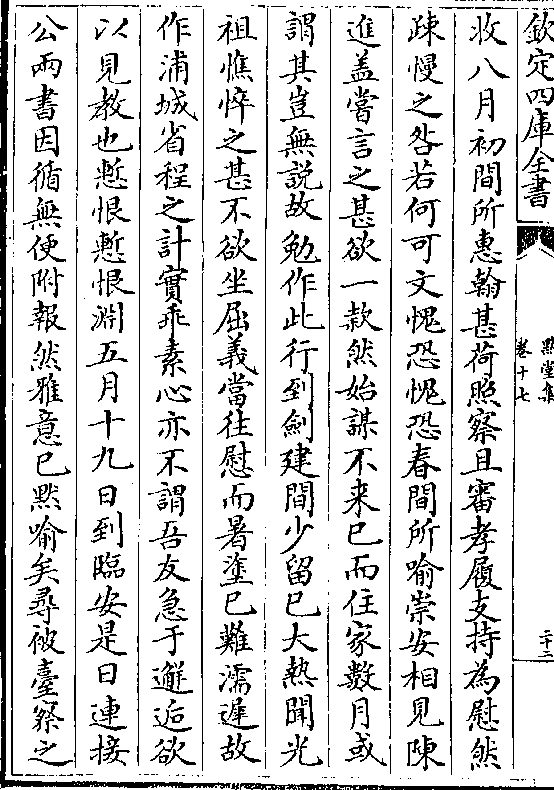 欽定四庫全書
默堂集
卷十七
二十二
收八月初間所惠翰甚荷照察且審孝履支持為慰然
疎慢之咎若何可文愧恐愧恐春間所喻崇安相見陳
進盖嘗言之甚欲一款然始謀不来已而住家數月或
謂其豈無説故勉作此行到劍建間少留已大熱聞光
祖憔悴之甚不欲坐屈義當往慰而暑塗已難濡遲故
作浦城省程之計實乖素心亦不謂吾友急于邂逅欲
以見教也慙恨慙恨淵五月十九日到臨安是日連接
公兩書因循無便附報然雅意已黙喻矣尋被臺察之